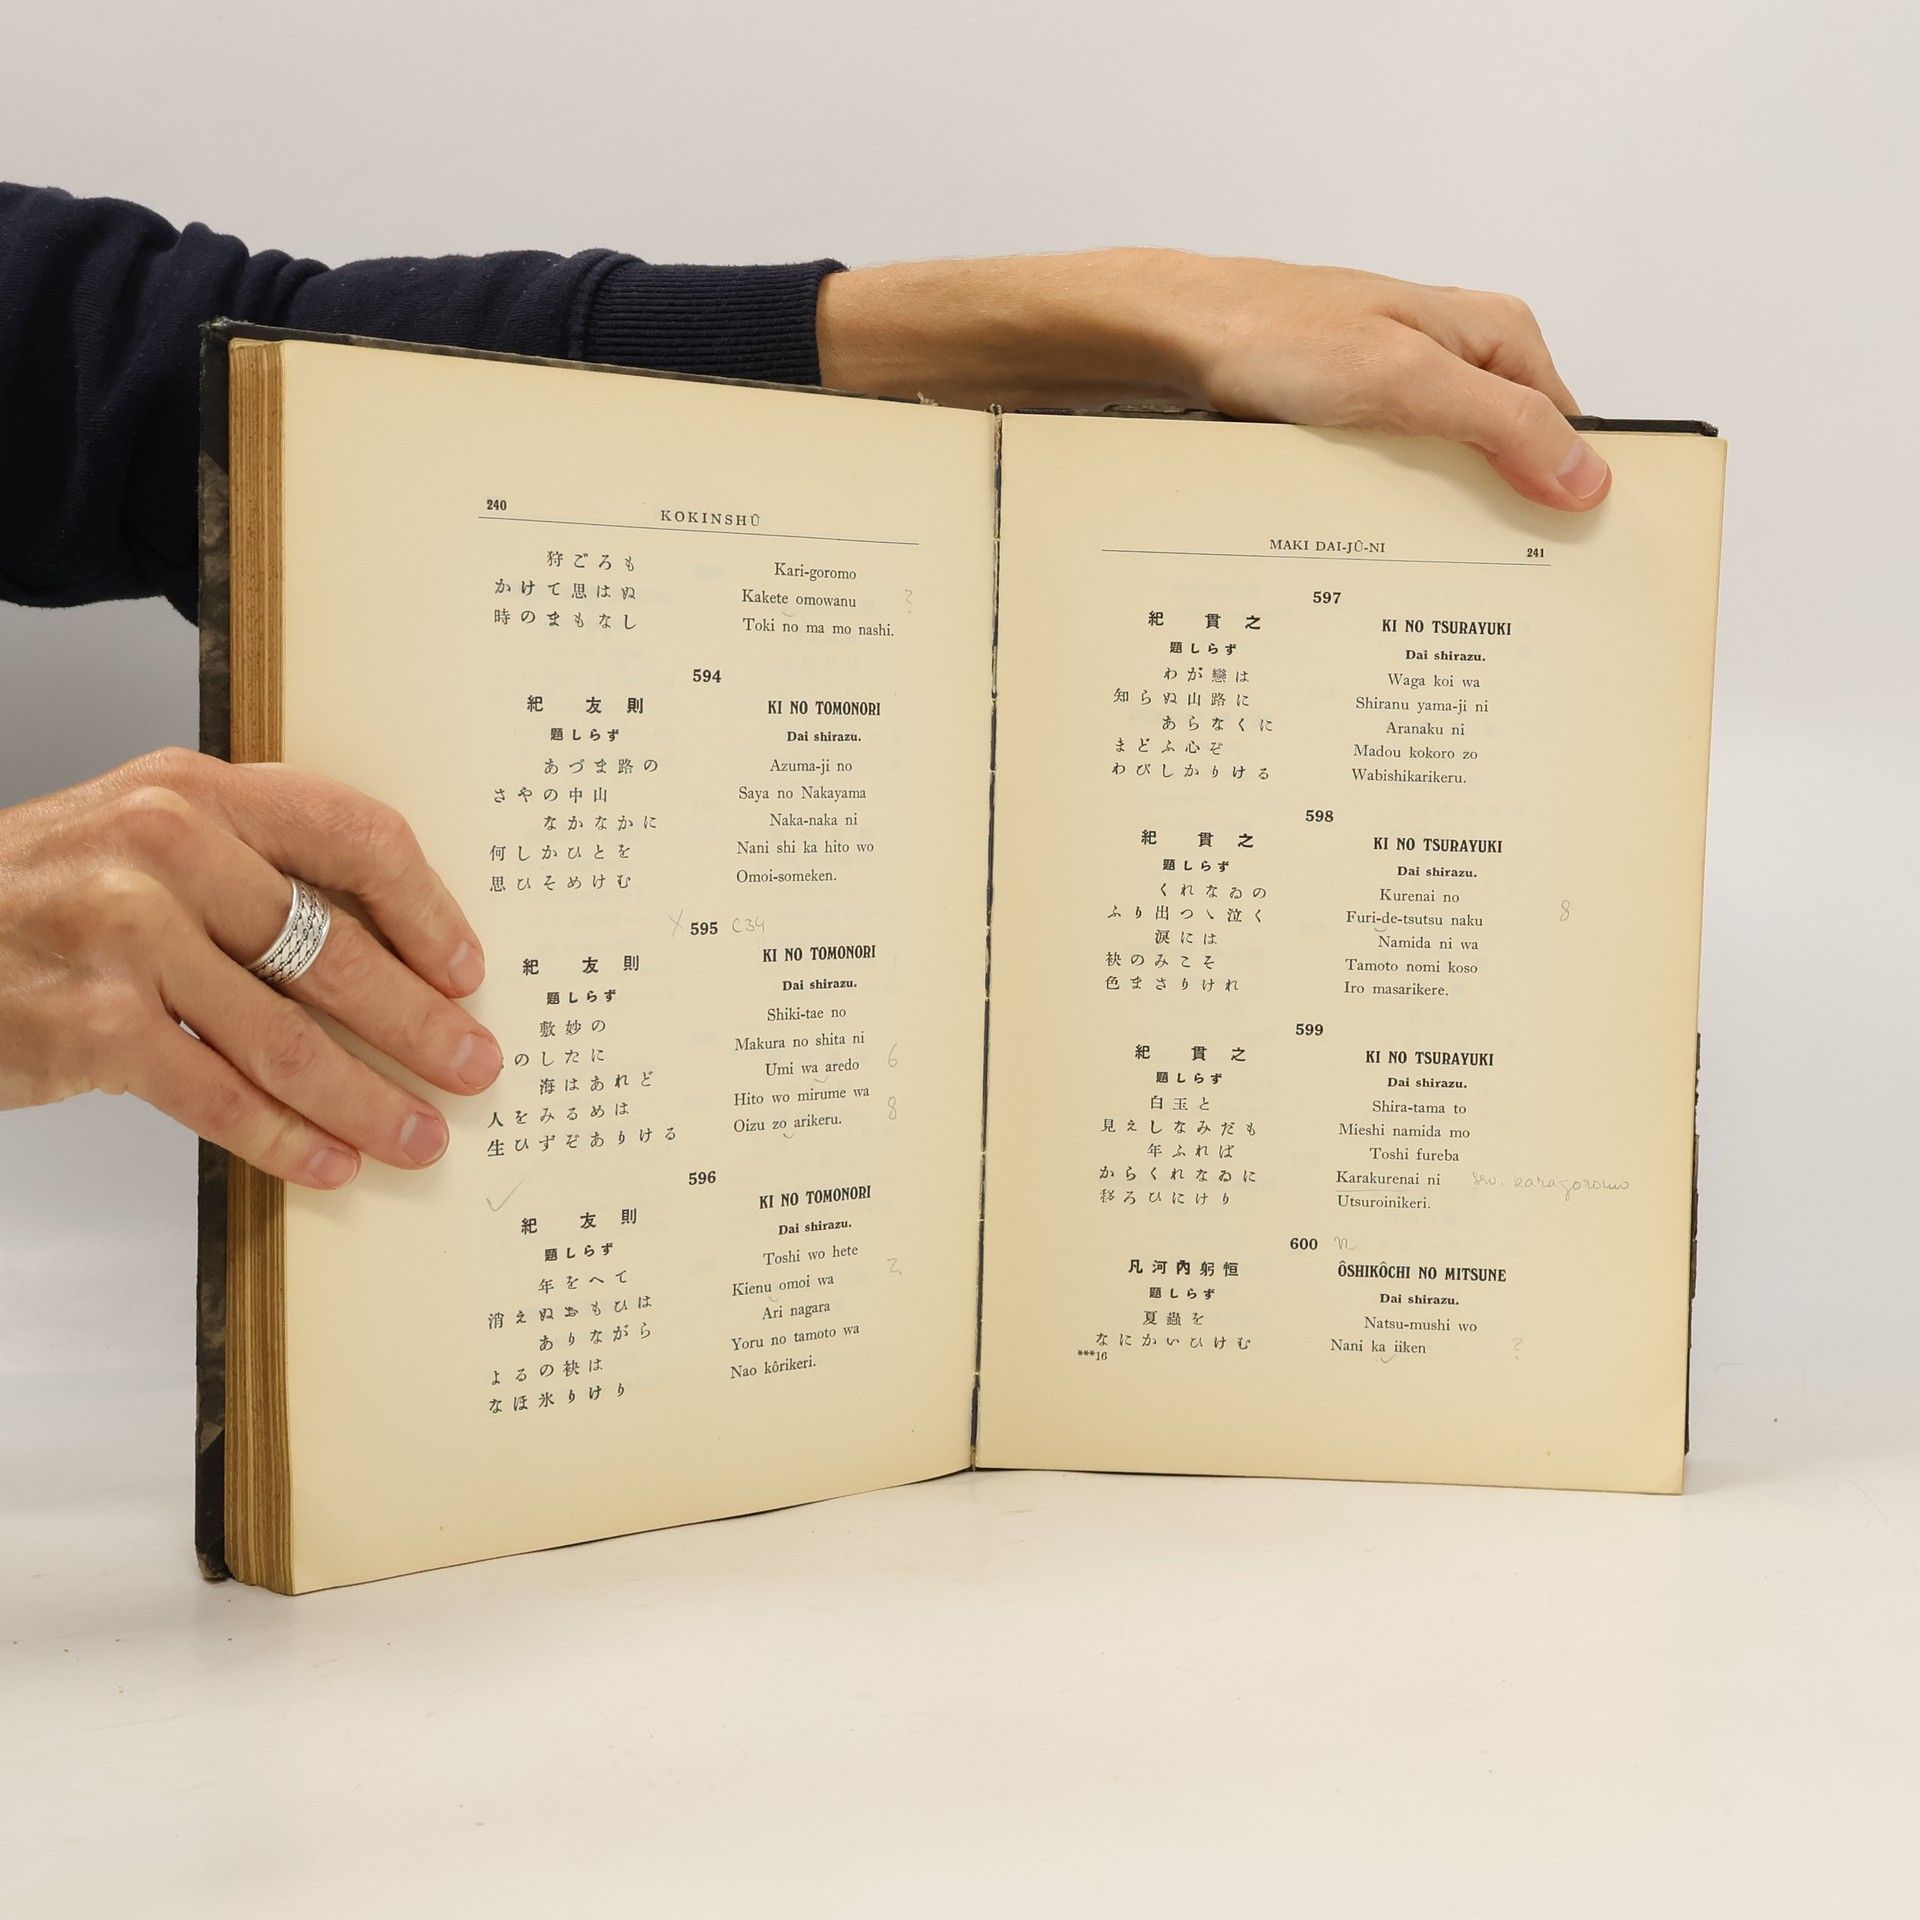 240
KOKINSHÛ
狩ごろも
Kari-goromo
かけて思はぬ
Kakete omowanu ?
時のまもなし
Toki no ma mo nashi.
594
紀友則
KI NO TOMONORI
題しらず
Dai shirazu.
あづま路の
Azuma-ji no
さやの中山
Saya no Nakayama
なかなかに
Naka-naka ni
何しかひとを
Nani shi ka hito wo
思ひそめけむ
Omoi-someken.
X 595 C34
紀友則
KI NO TOMONORI
題しらず
Dai shirazu.
敷妙の
Shiki-tae no
のしたに
Makura no shita ni
海はあれど
Umi wa aredo 6
人をみるめは
Hito wo mirume wa
生ひずぞありける
Oizu zo arikeru. 8
596
紀友則
KI NO TOMONORI
題しらず
Dai shirazu.
年をへて
Toshi wo hete
消えぬおもひは
Kienu omoi wa
ありながら
Ari nagara
よるの袂は
Yoru no tamoto wa
なほ氷りけり
Nao kôrikeri.
MAKI DAI-JÛ-NI
241
597
紀貫之
KI NO TSURAYUKI
題しらず
Dai shirazu.
わが戀は
Waga koi wa
知らぬ山路に
Shiranu yama-ji ni
あらなくに
Aranaku ni
まどふ心ぞ
Madou kokoro zo
わびしかりける
Wabishikarikeru.
598
紀貫之
KI NO TSURAYUKI
題しらず
Dai shirazu.
くれなゐの
Kurenai no
ふり出つゝ泣く
Furi-de-tsutsu naku 8
淚には
Namida ni wa
袂のみこそ
Tamoto nomi koso
色まさりけれ
Iro masarikere.
599
紀貫之
KI NO TSURAYUKI
題しらず
Dai shirazu.
白玉と
Shira-tama to
見えしなみだも
Mieshi namida mo
年ふれば
Toshi fureba
からくれなゐに
Karakurenai ni karagoromo
移ろひにけり
Utsuroinikeri.
600
凡河內躬恒
ÔSHIKÔCHI NO MITSUNE
題しらず
Dai shirazu.
夏蟲を
Natsu-mushi wo
なにかいひけむ
Nani ka iiken ?
***16